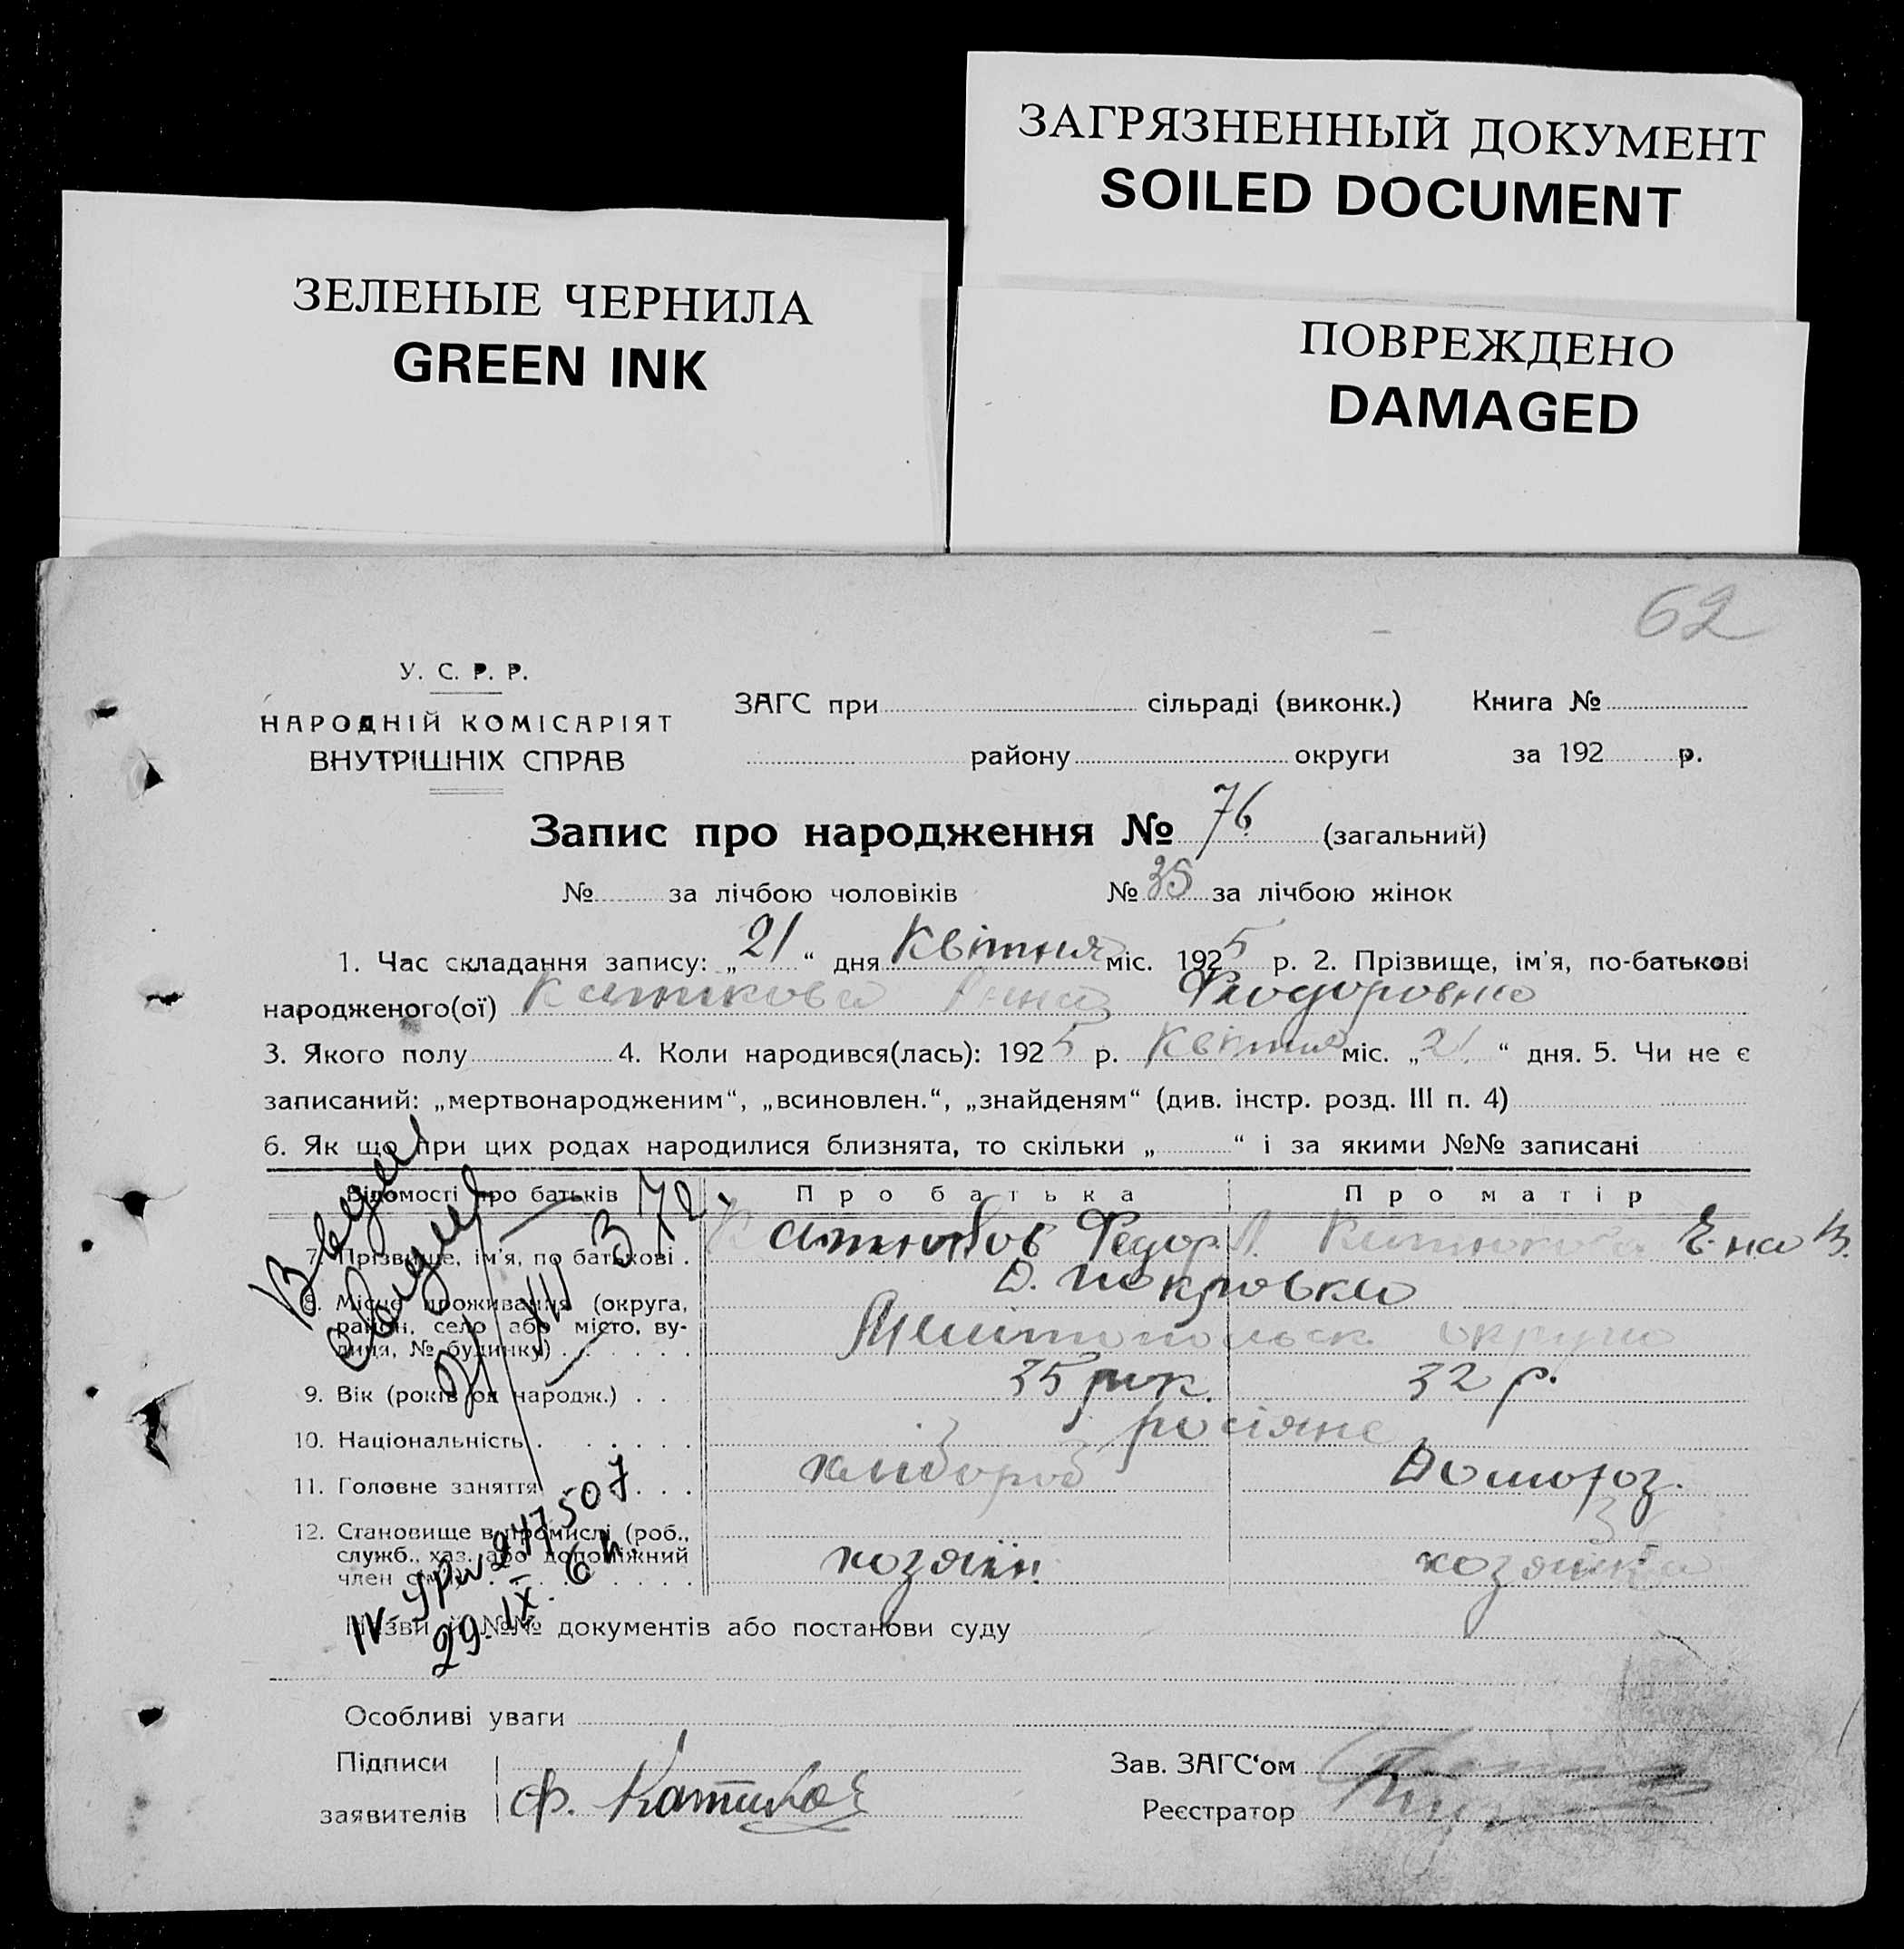 ЗАГРЯЗНЕННЫЙ ДОКУМЕНТ
SOILED DOCUMENT
ЗЕЛЕНЫЕ ЧЕРНИЛА
GREEN INK
ПОВРЕЖДЕНО
DAMAGED
62
У. С. Р. Р.
НАРОДНІЙ КОМІСАРІЯТ
ВНУТРІШНІХ СПРАВ
ЗАГС при сільраді (виконк.) Книга №
району округи за 192 р.
Запис про народження № 76 (загальний)
№ за лічбою чоловіків № 35 за лічбою жінок
1. Час складання запису: „21“ дня Квітня міс. 1925 р. 2. Прізвище, ім'я, по-батькові
народженого(ої) Анна Феодоровна
3. Якого полу 4. Коли народився(лась): 1925 р. Квітня міс. „21“ дня. 5. Чи не є
записаний: „мертвонародженим“, „всиновлен.“, „знайденям“ (див. інстр. розд. III п. 4)
6. Як що при цих родах народилися близнята, то скільки „ “ і за якими №№ записані
Відомості про батьків Про батька Про матір
7. Прізвище, ім'я, по батькові. Федор
8. Місце проживання (округа, район, село або місто, вулиця, № будинку) Покровка
Мелітопольск. округа
9. Вік (років од народж.) 35 рок. 32 р.
10. Національність росіяне
11. Головне заняття хлібороб Домогоз.
12. Становище в промислі (роб., служб., хаз. або допоміжний член сім'ї) хозяїн хозяйка
Назви й №№ документів або постанови суду
29. IX.
Особливі уваги
Підписи
заявителів Ф.
Зав. ЗАГС'ом
Реєстратор